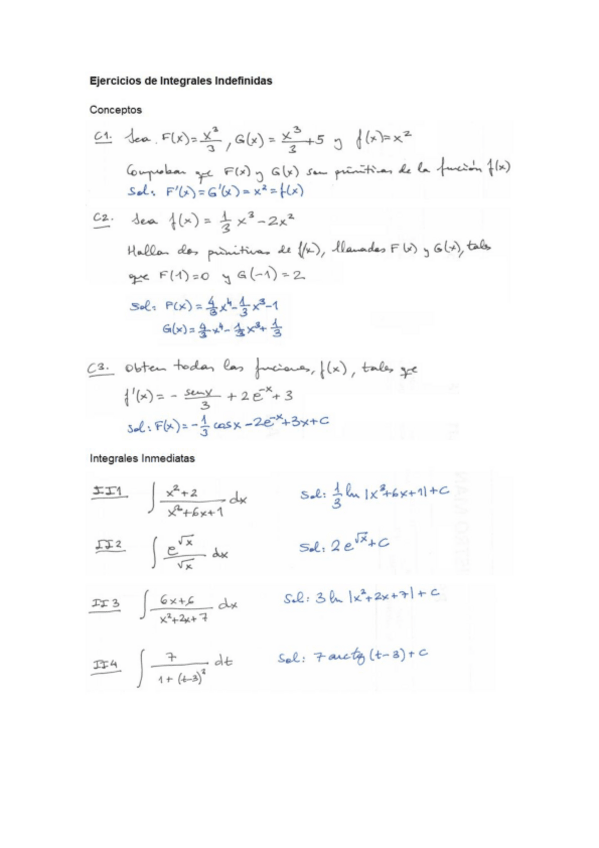 Ejercicios de Integrales Indefinidas
Conceptos
C1. Sea F(x)=x³/3, G(x)=x³/3+5 y f(x)=x²
Comprobar que F(x) y G(x) son primitivas de la función f(x)
Sol: F'(x)=G'(x)=x²=f(x)
C2. Sea f(x)=1/3 x³-2x²
Hallar dos primitivas de f(x), llamadas F(x) y G(x), tales
que F(1)=0 y G(-1)=2
C3. Obtén todas las funciones, f(x), tales que
f'(x)=- senx/3 + 2e^-x + 3
Sol: F(x)=-1/3 cosx-2e^-x+3x+C
Integrales Inmediatas
II1 ∫ x²+2/x³+6x+1 dx Sol: 1/3 ln|x³+6x+1|+C
II2 ∫ e^√x/√x dx Sol: 2e^√x+C
II3 ∫ 6x+6/x²+2x+7 dx Sol: 3 ln|x²+2x+7|+C
II4 ∫ 7/1+(t-3)² dt Sol: 7 arctg(t-3)+C